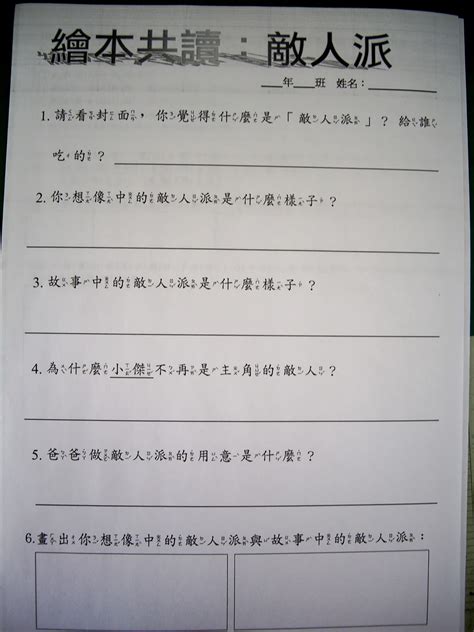 繪本共讀：敵人派
___年___班 姓名：______
1. 請看封面，你覺得什麼是「敵人派」？給誰
吃的？
2. 你想像中的敵人派是什麼樣子？
3. 故事中的敵人派是什麼樣子？
4. 為什麼小傑不再是主角的敵人？
5. 爸爸做敵人派的用意是什麼？
6. 畫出你想像中的敵人派與故事中的敵人派：